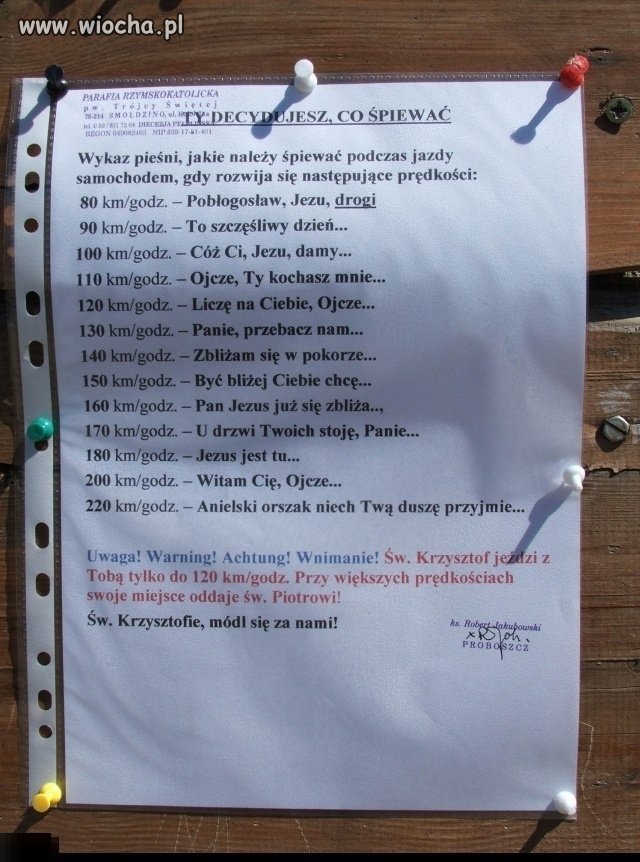 www.wiocha.pl
PARAFIA RZYMSKOKATOLICKA
pw. Trójcy Świętej
76-214 SMOŁDZINO, ul.
tel. 0 59 / 811 72 64 DIECEZJA
REGON 040082403 NIP 839-17-81-401
TY DECYDUJESZ, CO ŚPIEWAĆ
Wykaz pieśni, jakie należy śpiewać podczas jazdy
samochodem, gdy rozwija się następujące prędkości:
80 km/godz. – Pobłogosław, Jezu, drogi
90 km/godz. – To szczęśliwy dzień...
100 km/godz. – Cóż Ci, Jezu, damy...
110 km/godz. – Ojcze, Ty kochasz mnie...
120 km/godz. – Liczę na Ciebie, Ojcze...
130 km/godz. – Panie, przebacz nam...
140 km/godz. – Zbliżam się w pokorze...
150 km/godz. – Być bliżej Ciebie chcę...
160 km/godz. – Pan Jezus już się zbliża..,
170 km/godz. – U drzwi Twoich stoję, Panie...
180 km/godz. – Jezus jest tu...
200 km/godz. – Witam Cię, Ojcze...
220 km/godz. – Anielski orszak niech Twą duszę przyjmie...
Uwaga! Warning! Achtung! Wnimanie! Św. Krzysztof jeździ z
Tobą tylko do 120 km/godz. Przy większych prędkościach
swoje miejsce oddaje św. Piotrowi!
Św. Krzysztofie, módl się za nami!
ks. Robert Jakubowski
PROBOSZCZ